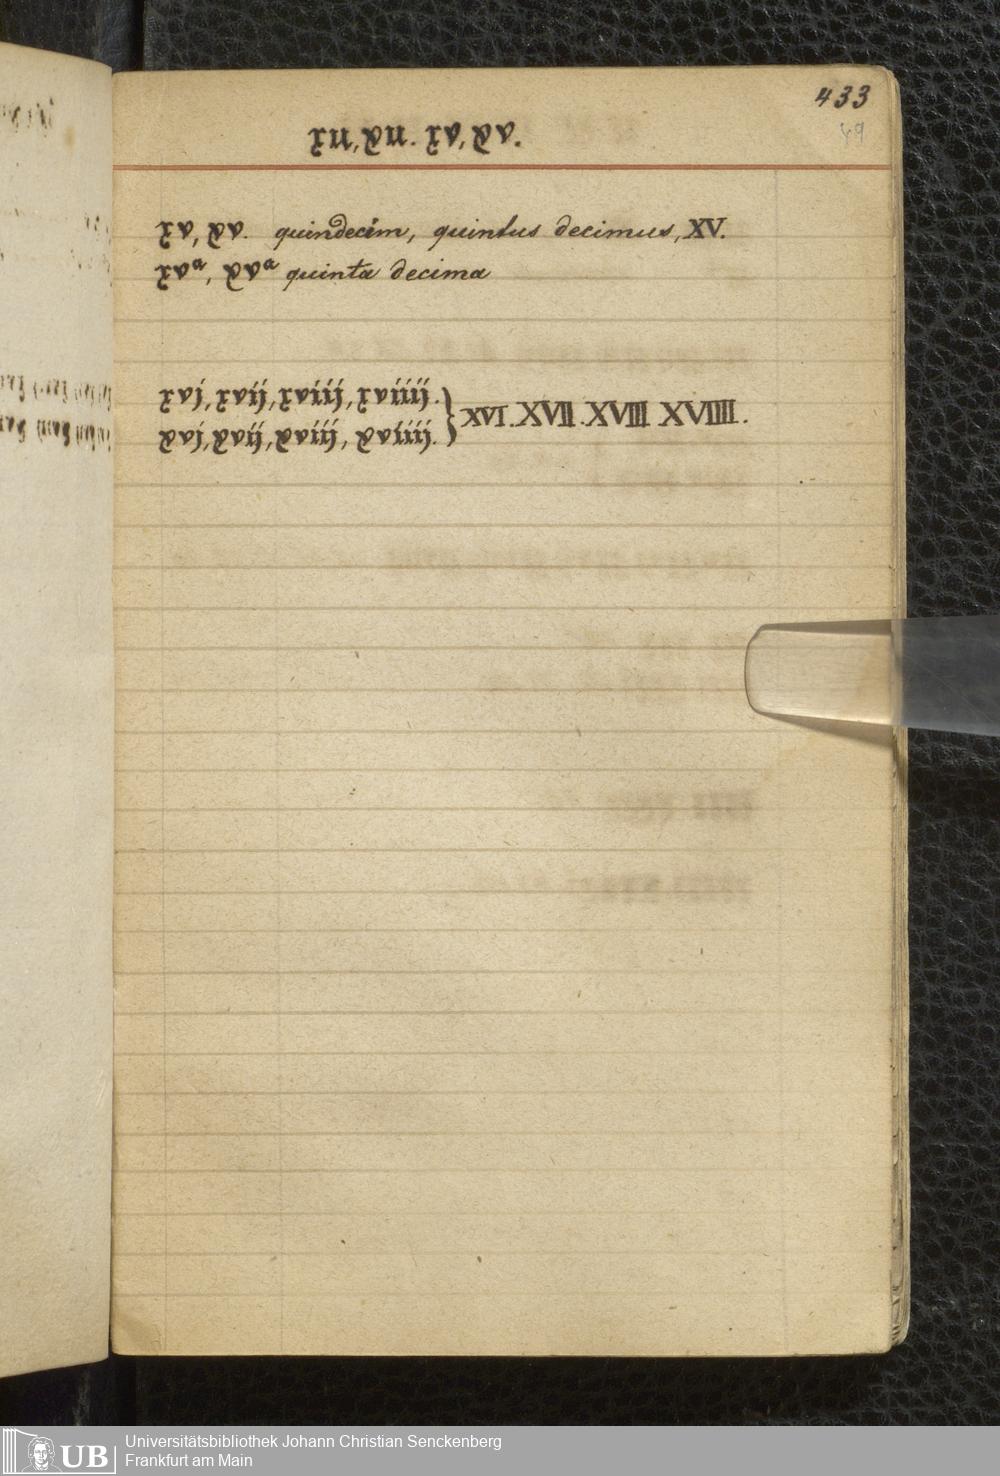 433
49
xu, xu. xv, xv.
xv, xv. quindecim, quintus decimus, XV.
xvᵃ, xvᵃ quinta decima
xvj, xvij, xviij, xviiij.
xvj, xvij, xviij, xviiij.
XVI. XVII. XVIII XVIIII.
UB Universitätsbibliothek Johann Christian Senckenberg
Frankfurt am Main